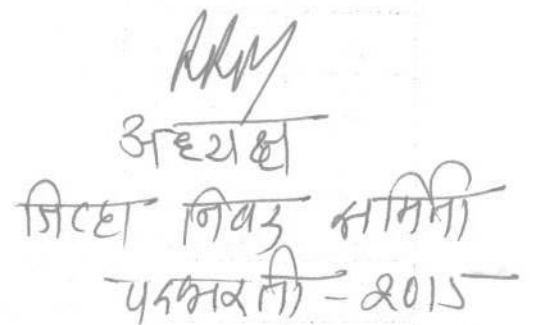 अध्यक्ष
जिल्हा निवड समिती
पदभरती - 2015